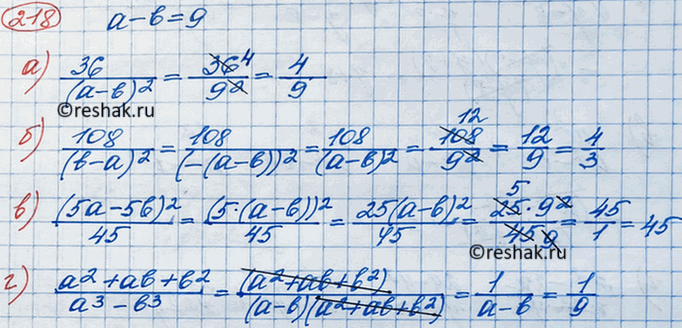 218 a-b=9
а) 36/(a-b)² = 36⁴/9² = 4/9
©reshak.ru
б) 108/(b-a)² = 108/(-(a-b))² = 108/(a-b)² = 108 12/9² = 12/9 = 4/3
в) (5a-5b)²/45 = (5·(a-b))²/45 = 25(a-b)²/45 = 25 5·9²/45 9 = 45/1 = 45
©reshak.ru
г) a²+ab+b²/a³-b³ = (a²+ab+b²)/(a-b)(a²+ab+b²) = 1/a-b = 1/9